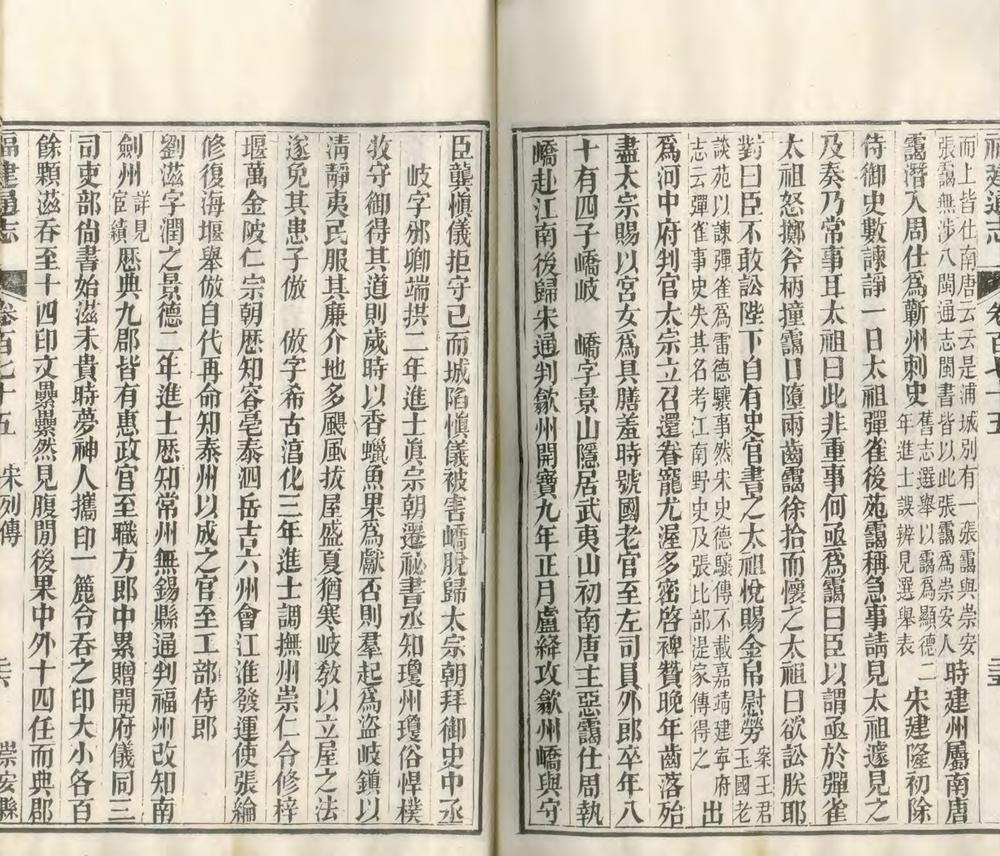 福建通志 卷百七十五
而上皆仕南唐云云是浦城別有一張靄與崇安
張靄無涉八閩通志閩書皆以此張靄爲崇安人 時建州屬南唐
靄潛入周仕爲蘄州刺史 舊志選舉以靄爲顯德二
年進士誤辨見選舉表 宋建隆初除
侍御史數諫諍一日太祖彈雀後苑靄稱急事請見太祖遽見之
及奏乃常事耳太祖曰此非重事何亟爲靄曰臣以謂亟於彈雀
太祖怒擲斧柄撞靄口墮兩齒靄徐拾而懷之太祖曰欲訟朕耶
對曰臣不敢訟陛下自有史官書之太祖悅賜金帛慰勞 案王君玉國老
談苑以諫彈雀爲雷德驤事然宋史德驤傳不載嘉靖建寧府
志云彈雀事史失其名考江南野史及張比部湜家傳得之 出
爲河中府判官太宗立召還眷寵尤渥多密啓裨贊晚年齒落殆
盡太宗賜以宮女爲具膳羞時號國老官至左司員外郎卒年八
十有四子嶠岐　嶠字景山隱居武夷山初南唐主惡靄仕周執
嶠赴江南後歸宋通判歙州開寶九年正月盧絳攻歙州嶠與守
臣龔慎儀拒守已而城陷慎儀被害嶠脫歸太宗朝拜御史中丞
岐字邪卿端拱二年進士眞宗朝遷祕書丞知瓊州瓊俗悍樸
牧守御得其道則歲時以香蠟魚果爲獻否則羣起爲盜岐鎮以
清靜夷民服其廉介地多颶風拔屋盛夏猶寒岐敎以立屋之法
遂免其患子倣　倣字希古淳化三年進士調撫州崇仁令修梓
堰萬金陂仁宗朝歴知容亳泰泗岳吉六州會江淮發運使張綸
修復海堰舉倣自代再命知泰州以成之官至工部侍郎
劉滋字潤之景德二年進士歴知常州無錫縣通判福州改知南
劍州 詳見宦績 歴典九郡皆有惠政官至職方郎中累贈開府儀同三
司吏部尚書始滋未貴時夢神人攜印一簏令吞之印大小各百
餘顆滋吞至十四印文纍纍然見腹閒後果中外十四任而典郡
福建通志 卷百七十五 宋列傳 崇安縣